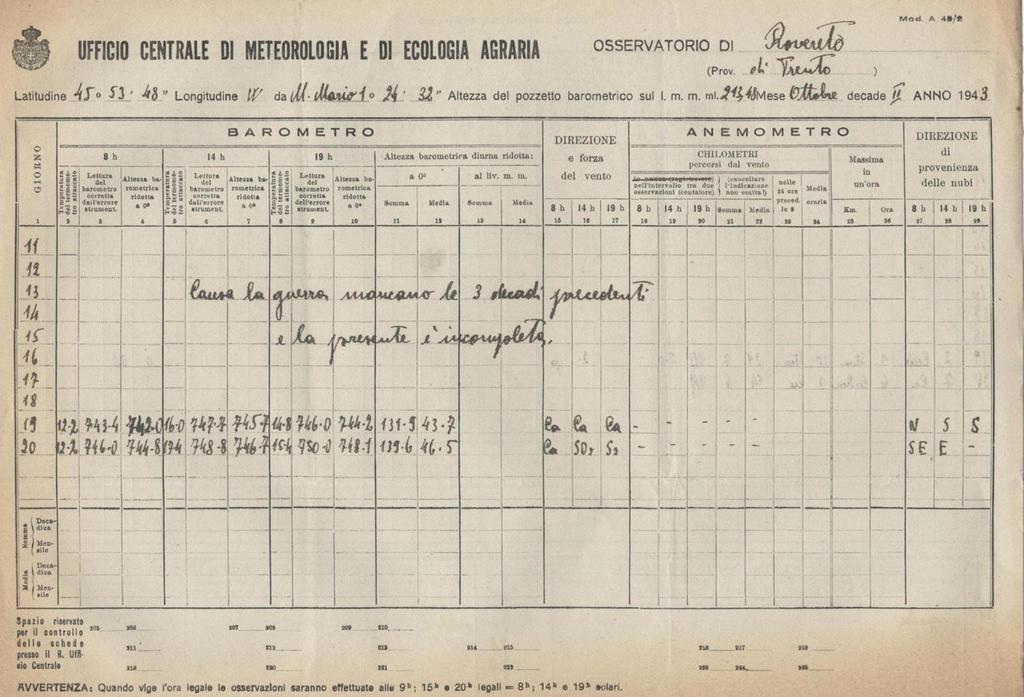 Mod. A 48/2
UFFICIO CENTRALE DI METEOROLOGIA E DI ECOLOGIA AGRARIA OSSERVATORIO DI Rovereto
(Prov. di Trento )
Latitudine 45° 53' 48" Longitudine W da M. Mario 1° 24' 32" Altezza del pozzetto barometrico sul l. m. m. ml. 213,48 Mese Ottobre decade II ANNO 1943
GIORNO BAROMETRO DIREZIONE e forza del vento ANEMOMETRO DIREZIONE di provenienza delle nubi
8 h 14 h 19 h Altezza barometrica diurna ridotta: CHILOMETRI percorsi dal vento Massima in un'ora
Temperatura del termometro attaccato Lettura del barometro corretta dall'errore strument. Altezza barometrica ridotta a 0° Temperatura del termometro attaccato Lettura del barometro corretta dall'errore strument. Altezza barometrica ridotta a 0° Temperatura del termometro attaccato Lettura del barometro corretta dall'errore strument. Altezza barometrica ridotta a 0° a 0° al liv. m. m. nell'intervallo tra due osservazioni (contatore) (cancellare l'indicazione non esatta) nelle 24 ore preced. le 8 Media oraria
Somma Media Somma Media 8 h 14 h 19 h 8 h 14 h 19 h Somma Media Km. Ora 8 h 14 h 19 h
1 2 3 4 5 6 7 8 9 10 11 12 13 14 15 16 17 18 19 20 21 22 23 24 25 26 27 28 29
11
12
13 Causa la guerra mancano le 3 decadi precedenti
14
15 e la presente è incompleta.
16
17
18
19 12-2 743-4 742-0 16-0 747-7 745-7 14-8 746-0 744-2 131-9 43-7 Ca Ca Ca - - - - - N S S
20 12-2 746-0 744-8 17-4 748-8 746-7 15-4 750-0 748-1 139-6 46-5 Ca SO2 S2 - - - - - SE E -
Somma Decadica
Mensile
Media Decadica
Mensile
Spazio riservato per il controllo delle schede presso il R. Ufficio Centrale
205 206 207 208 209 210
211 212 213 214 215 216 217 218
219 220 221 222
AVVERTENZA: Quando vige l'ora legale le osservazioni saranno effettuate alle 9h; 15h e 20h legali = 8h; 14h e 19h solari.